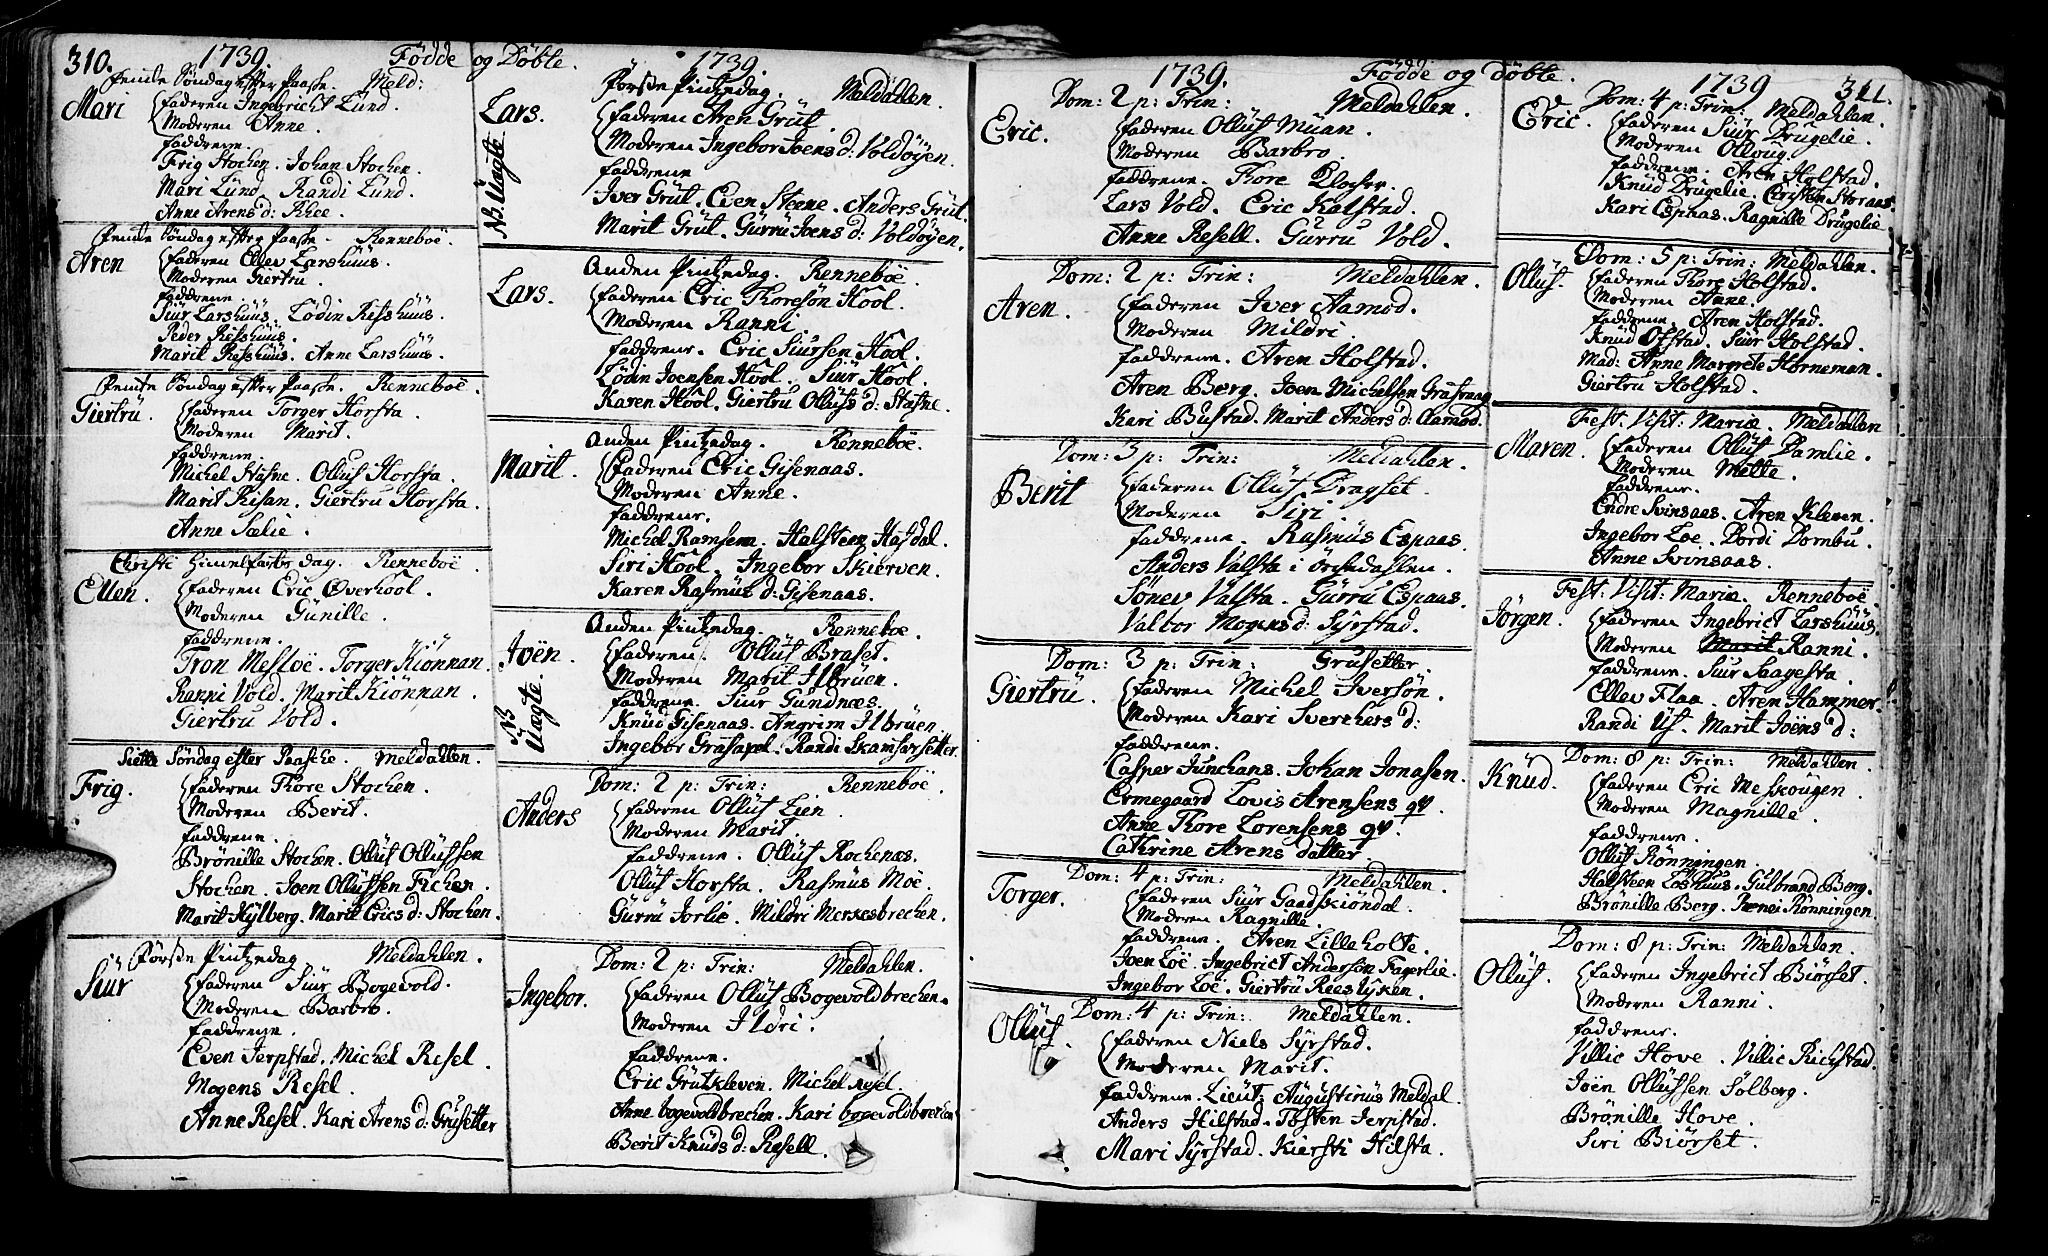 310. 1739. Födde og Döbte. 1739.
Femte Söndag efter Paaske. Meld:
Mari
faderen Ingebricht Lund.
Moderen Anne.
faddrene.
Frig Stochen. Johan Stochen.
Mari Lünd. Randi Lünd.
Anne Arens d: Rhee.
Femte Söndag efter Paaske. Renneboë.
Aren
faderen Ellev Larshüüs.
Moderen Giertru.
faddrene.
Siür Larshüüs. Lödin Risshüüs.
Peder Risshüüs.
Marit Risshüüs. Anne Larshüüs.
Femte Söndag efter Paaske. Renneboë.
Giertrü.
faderen Torger Horsta.
Moderen Marit.
faddrene.
Michel Stafne. Olluf Horsta.
Marit Risan. Giertru Horsta.
Anne Sælie.
Christi Himmelfarts dag. Renneboë.
Ellen.
faderen Eric Overhool.
Moderen Gunille.
faddrene.
Tron Mesloë. Torger Kiönnan.
Ranni Vold. Marit Kiönnan.
Giertru Vold.
Siette Söndag efter Paasche. Meldahlen.
Frig.
faderen Thore Stochen.
Moderen Berit.
faddrene.
Brönille Stochen. Olluf Ollüfsen
Stochen. Joen Ollüfsen Fichen.
Marit Hylberg. Marit Erics d: Stochen.
Förste Pintzedag Meldahlen.
Siür
faderen Siur Bogevold.
Moderen Barbro.
faddrene.
Even Jerpstad. Michel Resel.
Mogens Resel.
Anne Resel. Kari Arens d: Grüsetter
Förste Pintzedag. Meldahlen.
Lars.
NB. Uægte
faderen Aren Grüt.
Moderen Ingebor Joens d: Voldöyen.
faddrene
Iver Grüt. Even Steene. Anders Grüt.
Marit Grüt. Gürru Joens d: Voldöyen.
Anden Pintzedag. Renneböe.
Lars.
faderen Eric Thoresön Hool.
Moderen Ranni
faddrene. Eric Siursen Hool.
Lödin Joensen Hool. Siür Hool.
Karen Hool. Giertru Ollufs d: Stafne.
Anden Pintzedag. Renneböe.
Marit.
faderen Eric Gisenaas.
Moderen Anne.
faddrene.
Michel Ramsem. Halsteen Hafdal.
Siri Hool. Ingebor Skierven.
Karen Rasmus d: Gisenaas.
Anden Pintzedag. Renneboe.
Joën.
NB Uægte.
faderen. Olluf Braset.
Moderen Marit Ilbrüen.
faddrene. Siur Gundnæs.
Knud Gisenaas. Angrim Ilbrüen.
Ingebor Grasaxel. Randi Skamfarsetter.
Dom: 2 p: Trin: Renneboë.
Anders
faderen Ollüf Lien
Moderen Marit.
faddrene. Ollüf Rochenæs.
Olluf Horsta. Rasmus Moe.
Gürru Jorlie. Mildri Merkesbrechen.
Dom: 2 p: Trin: Meldahlen.
Ingebor.
faderen Ollüf Bogevoldbrechen.
Moderen Ildri.
faddrene.
Eric Grütkleven. Michel Resel.
Anne bogevoldbrechen. Kari bogevoldbrechen
Berit Knüds d: Resell.
1739. Födde og döbte. 1739 311.
Dom: 2 p: Trin: Meldahlen.
Eric.
faderen Olluf Müan.
Moderen Barbro.
faddrene. Thore Klocker.
Lars Vold. Eric Kalstad.
Anne Resell. Gürru Vold.
Dom: 2 p: Trin: Meldahlen.
Aren.
faderen Iver Aamod.
Moderen Mildri
faddrene. Aren Holstad.
Aren Berg. Joen Michelsen Grefstaag.
Kari Bustad. Marit Anders d: Aamod.
Dom: 3 p: Trin: Meldahlen.
Berit
faderen Olluf Dragset.
Moderen Siri
faddrene. Rasmüs Espaas.
Anders Valsta i örchedahlen.
Sönev Valsta. Gürru Espaas.
Valbor Mogens d: Syrstad.
Dom: 3 p: Trin: Grusetter.
Giertrü.
faderen Michel Iversön.
Moderen Kari Sverchers d:
faddrene.
Casper Junchans. Johan Jonasen.
Ermegaard Lovis Arensens qv.
Anne Thore Lorensens qv.
Cathrine Arens datter.
Dom: 4 p: Trin: Meldahlen.
Torger.
faderen Siur Gaadskiöndal.
Moderen Ragnille.
faddrene. Aren Lilleholte.
Joen Loë. Ingebrict Andersön Fagerlie.
Ingebor Loë. Giertrü Reeslyken.
Dom: 4 p: Trin: Meldahlen.
Ollüf.
faderen Niels Syrstad.
Moderen Marit.
faddrene. Lieut: Augustinüs Meldal.
Anders Hilstad. Tosten Jerpstad.
Mari Syrstad. Kiersti Hilsta.
Dom: 4 p: Trin: Meldahlen.
Eric.
faderen Siür Drugelie.
Moderen Olloug.
faddrene. Aren Holstad.
Knud Drugelie. Christen Storaas.
Kari Espaas. Ragnille Drugelie
Dom: 5 p: Trin: Meldahlen.
Ollüf.
faderen Thore Holstad.
Moderen Anne.
faddrene. Aren Holstad.
Knud Ofstad. Siür Holstad.
Mad: Anne Margrete Horneman.
Giertru Holstad.
Fest: Visit: Mariæ. Meldahlen
Maren.
faderen Ollüf Damlie.
Moderen Mette.
faddrene.
Endre Svinsaas. Aren Kleven.
Ingebor Loe. Dordi Dombu.
Anne Svinsaas.
Fest: Visit: Mariæ. Renneboë.
Jörgen.
faderen Ingebrict Larshüüs.
Moderen Marit Ranni.
faddrene. Siur Saagesta.
Ellev Flaa. Aren Hammer.
Randi Uf. Marit Joëns d:
Dom: 8 p: Trin: Meldahlen.
Knüd.
faderen Eric Meskougen.
Moderen Magnille.
faddrene.
Olluf Rönningen.
Halsteen Loshuus. Gulbrand Berg.
Brönille Berg. Renei Rönningen.
Dom: 8 p: Trin: Meldahlen.
Ollüf.
faderen Ingebrict Biörset.
Moderen Ranni.
faddrene.
Villic Hove. Villic Richstad.
Joën Ollüfsen Solberg.
Brönille Hove.
Siri Biörset.